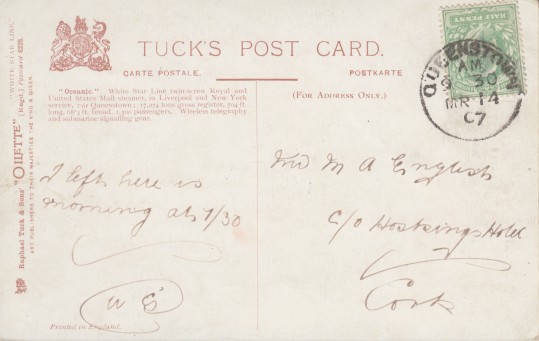 TUCK'S POST CARD.
CARTE POSTALE. POSTKARTE
"Oceanic." White Star Line twin-screw Royal and
United States Mail steamer, in Liverpool and New York
service, viâ Queenstown; 17,274 tons gross register, 704 ft.
long, 68·3 ft. broad. passengers. Wireless telegraphy
and submarine signalling gear.
(FOR ADDRESS ONLY.)
HALF PENNY
QUEENSTOWN
AM
30
MR 14
07
"WHITE STAR LINE."
"OILETTE" [Regd.] Postcard
Raphael Tuck & Sons'
ART PUBLISHERS TO THEIR MAJESTIES THE KING & QUEEN.
I left here is
morning at 7/30
M A English
c/o Hoskings Hotel
Cork
Printed in England.